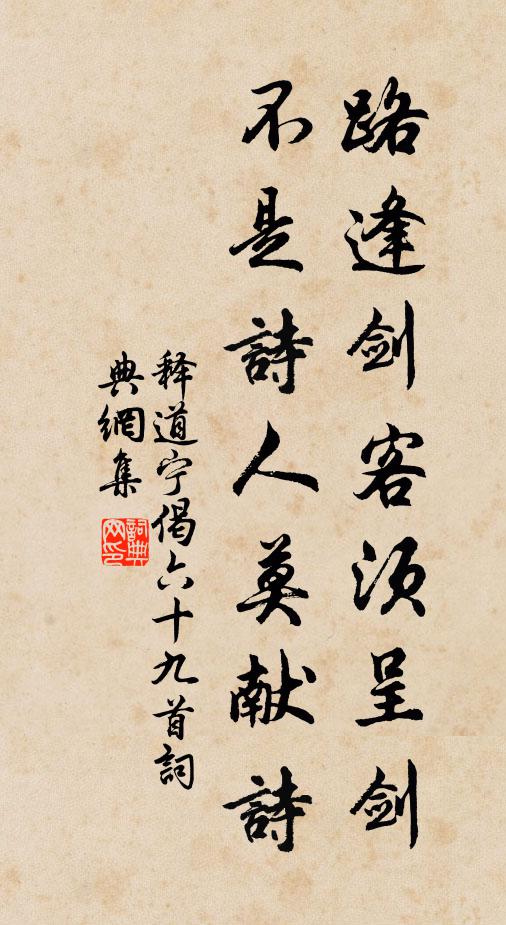 路逢剑客须呈剑
不是詩人莫献詩
释道宁偈六十九首詞
典網集
詞典网印